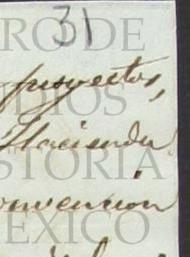 31
RO DE
proyectos,
DIOS
Hacienda
STORIA
onvencion
EXICO